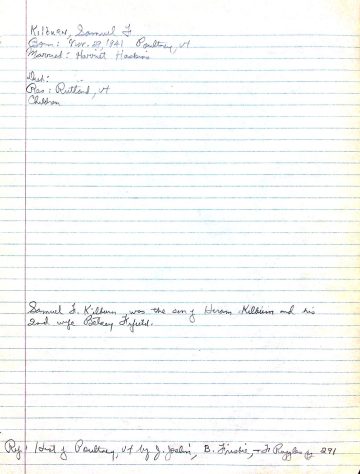 Kilburn, Samuel F
Born: Nov. 29, 1841 Poultney, Vt
Married: Harriet Hoskins
Died:
Res: Rutland, Vt
Children
Samuel F. Kilburn was the son of Hiram Kilburn and his
2nd wife Betsey Fifield.
Ref: Hist of Poultney, Vt by J. Joslin, B. Frisbie, F. Ruggles pg 291